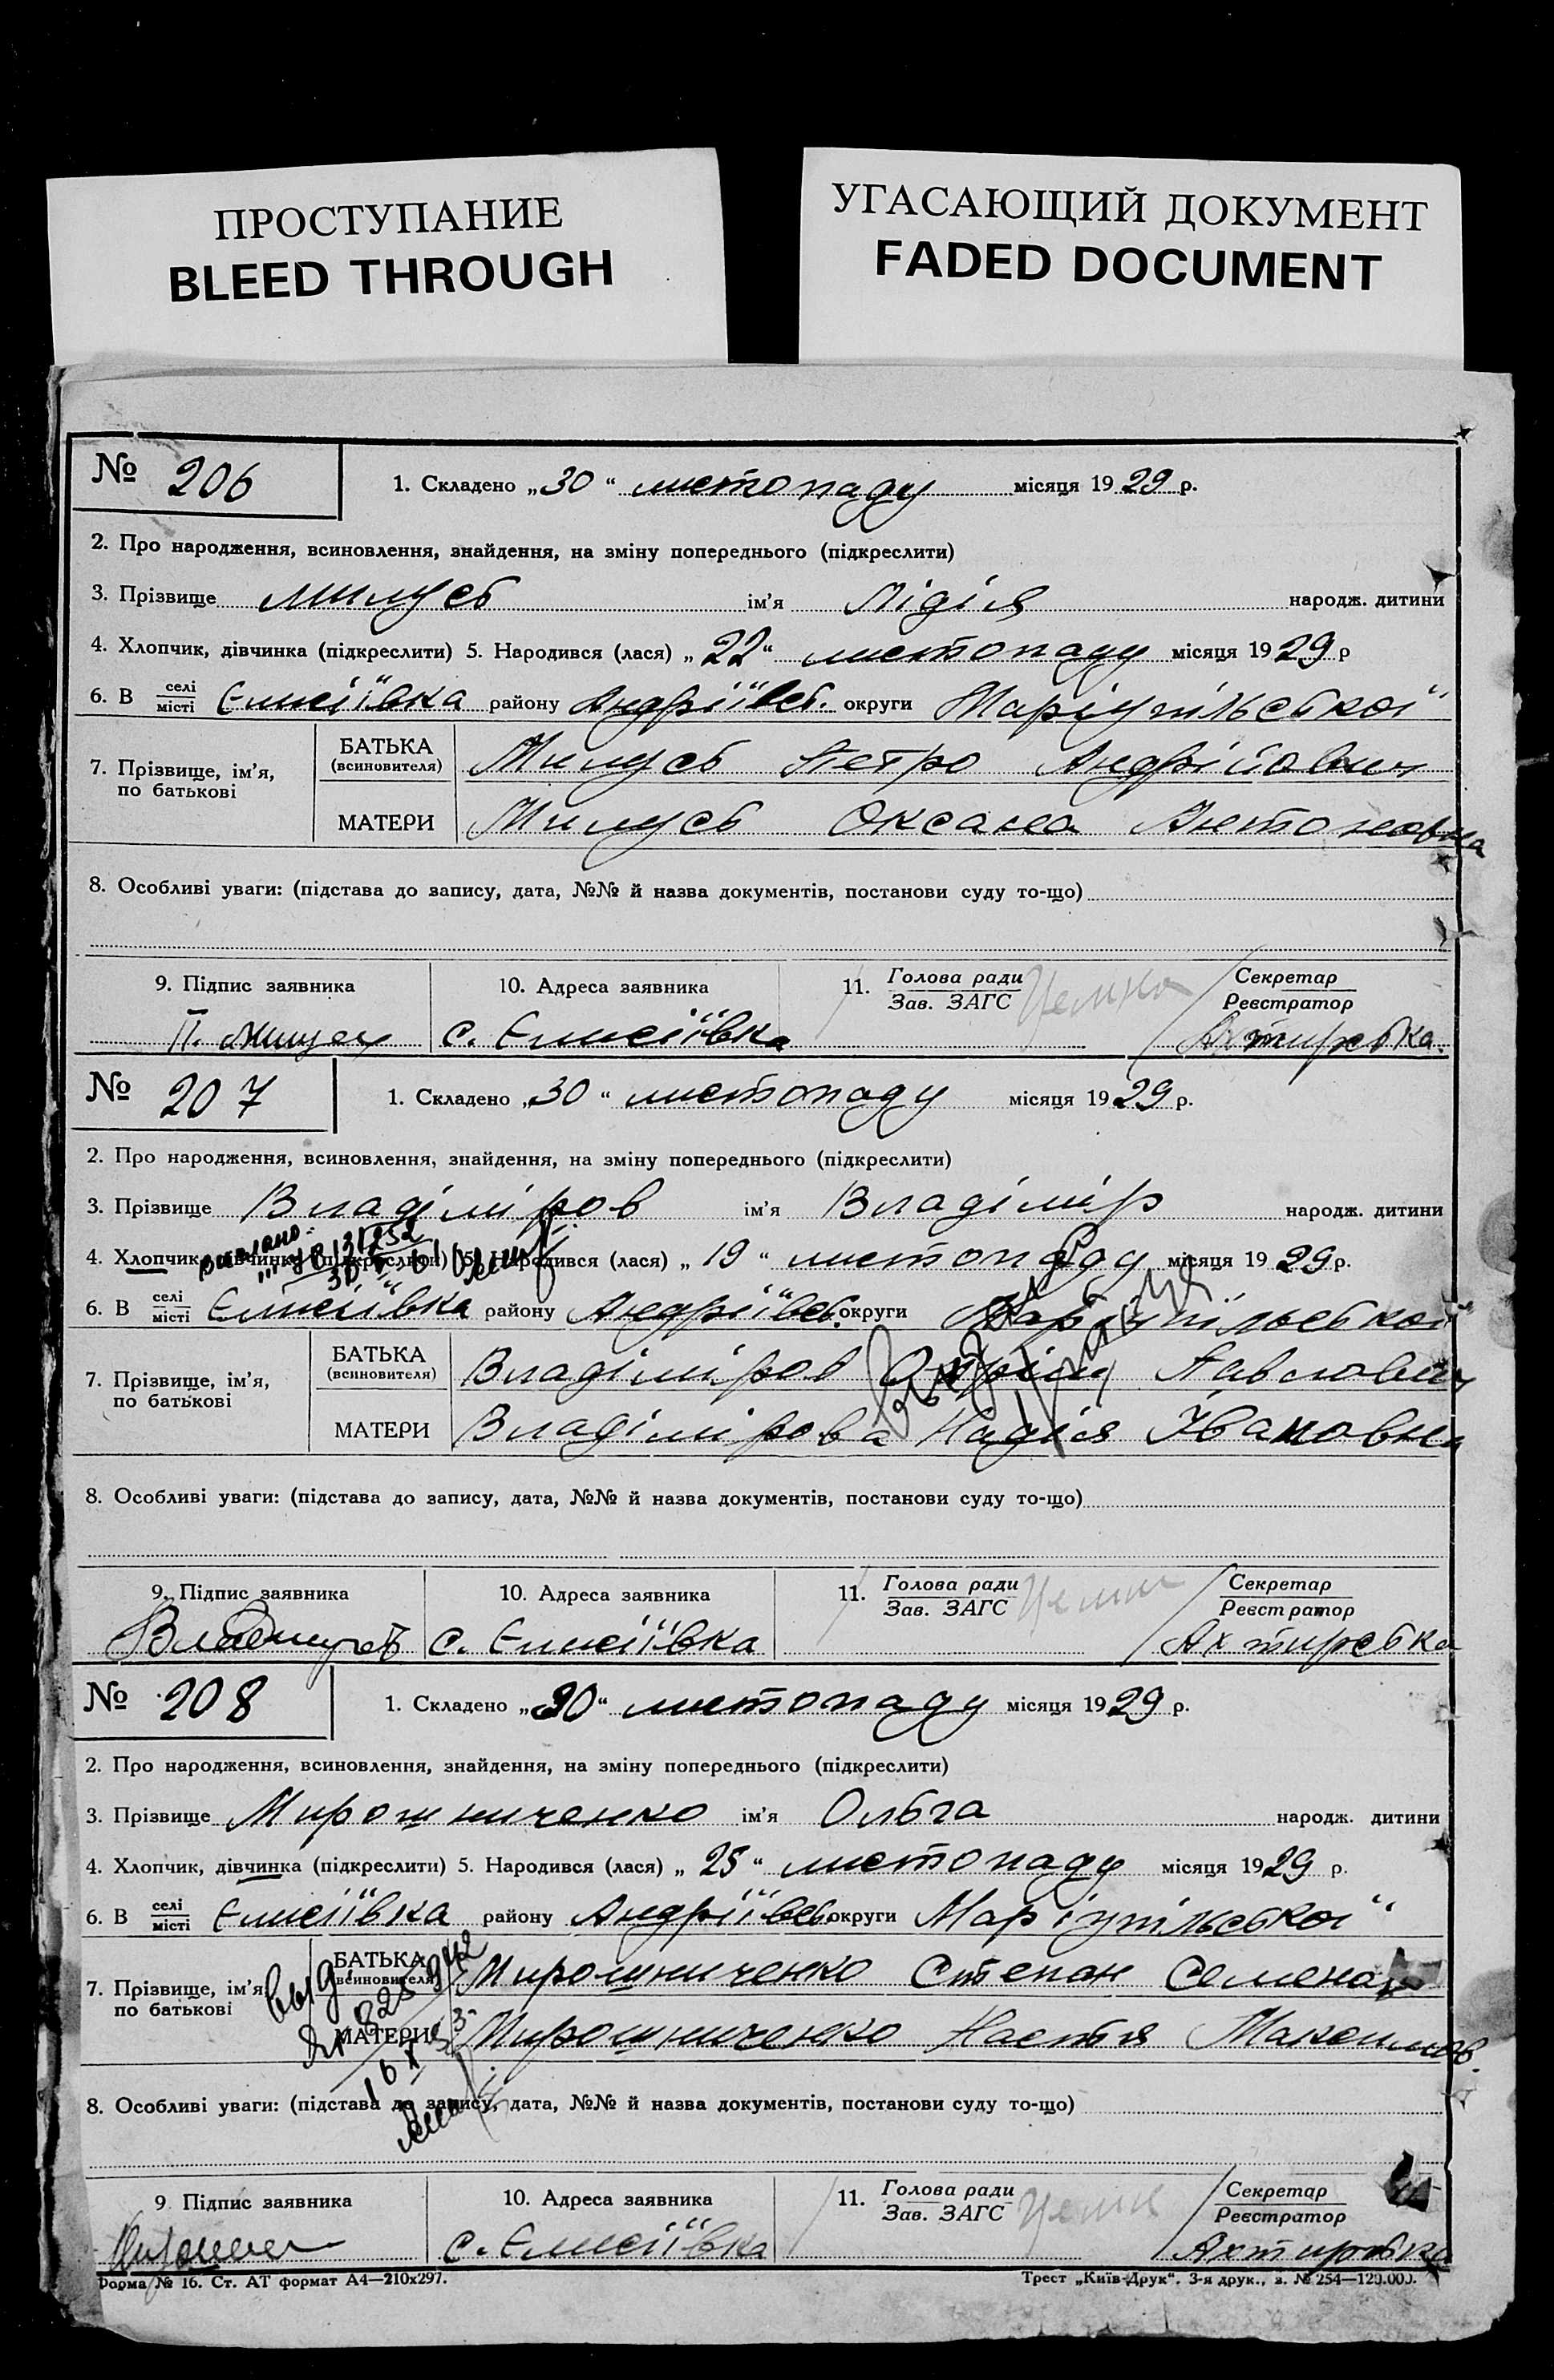 ПРОСТУПАНИЕ
BLEED THROUGH
УГАСАЮЩИЙ ДОКУМЕНТ
FADED DOCUMENT
№ 206 1. Складено „30“ листопаду місяця 1929 р.
2. Про народження, всиновлення, знайдення, на зміну попереднього (підкреслити)
3. Прізвище Милусь ім'я Лідія народж. дитини
4. Хлопчик, дівчинка (підкреслити) 5. Народився (лася) „22“ листопаду місяця 1929 р
6. В селі/місті Єлисіївка району Андріївсь. округи Маріупільської
7. Прізвище, ім'я, по батькові
БАТЬКА (всиновителя) Милусь Петро Андрійович
МАТЕРИ Милусь Оксана Антоновна
8. Особливі уваги: (підстава до запису, дата, №№ й назва документів, постанови суду то-що)
9. Підпис заявника 10. Адреса заявника 11. Голова ради/Зав. ЗАГС Секретар/Реєстратор
П. с. Єлисіївка Ахтирська.
№ 207 1. Складено „30“ листопаду місяця 1929 р.
2. Про народження, всиновлення, знайдення, на зміну попереднього (підкреслити)
3. Прізвище Владіміров ім'я Владімір народж. дитини
4. Хлопчик, дівчинка (підкреслити) 5. Народився (лася) „19“ листопаду місяця 1929 р.
6. В селі/місті Єлисіївка району Андріївсь. округи Маріупільської
7. Прізвище, ім'я, по батькові
БАТЬКА (всиновителя) Владіміров Павлович
МАТЕРИ Владімірова Надія Івановна
8. Особливі уваги: (підстава до запису, дата, №№ й назва документів, постанови суду то-що)
9. Підпис заявника 10. Адреса заявника 11. Голова ради/Зав. ЗАГС Секретар/Реєстратор
с. Єлисіївка Ахтирська
№ 208 1. Складено „30“ листопаду місяця 1929 р.
2. Про народження, всиновлення, знайдення, на зміну попереднього (підкреслити)
3. Прізвище Мирошниченко ім'я Ольга народж. дитини
4. Хлопчик, дівчинка (підкреслити) 5. Народився (лася) „25“ листопаду місяця 1929 р.
6. В селі/місті Єлисіївка району Андріївсь. округи Маріупільської
7. Прізвище, ім'я, по батькові
БАТЬКА (всиновителя) Мирошниченко Степан
МАТЕРИ Мирошниченко Настя Максимов.
8. Особливі уваги: (підстава до запису, дата, №№ й назва документів, постанови суду то-що)
9 Підпис заявника 10. Адреса заявника 11. Голова ради/Зав. ЗАГС Секретар/Реєстратор
с. Єлисіївка Ахтирська
Форма № 16. Ст. АТ формат А4—210х297. Трест „Київ-Друк“. 3-я друк., з. № 254—120.000.